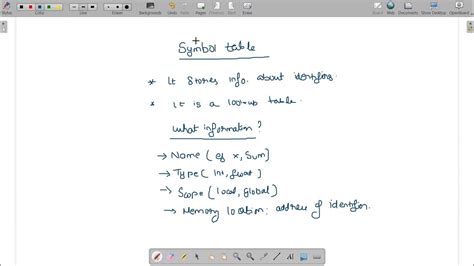 Undo Redo Boards Board Erase Backgrounds Previous Next Pages Board Web Documents Show Desktop OpenBoard
Symbol table
* It stores info. about identifiers.
* It is a look-up table.
What information?
→ Name (eg x, sum)
→ Type (int, float)
→ Scope (local, global)
→ Memory location: address of identifier.